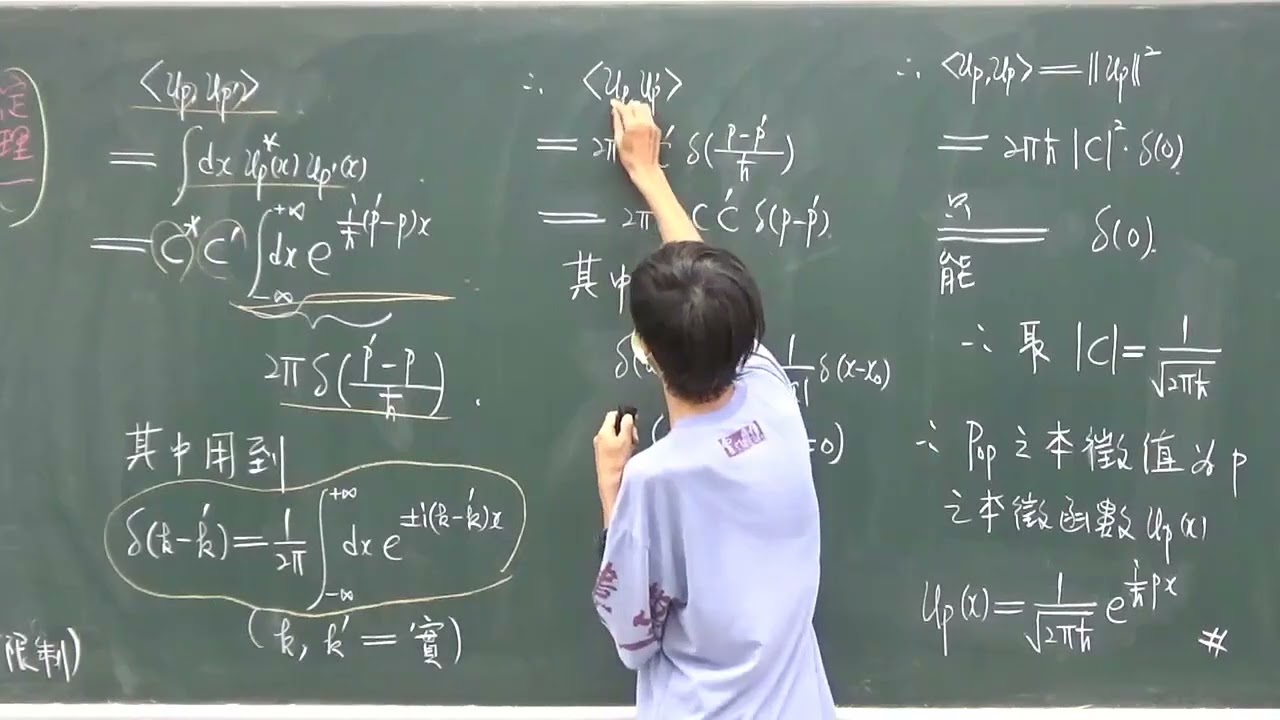 定
理
一
限制)
<u_p, u_p'>
= ∫dx u_p*(x) u_p'(x)
= C* C' ∫_{-∞}^{+∞} dx e^{i/ħ(p'-p)x}
2π δ(p'-p/ħ).
其中用到
δ(k-k') = 1/2π ∫_{-∞}^{+∞} dx e^{±i(k-k')x}
(k, k' = 實)
∴ <u_p, u_p'>
= 2π C' δ(p-p'/ħ)
= 2π C C' δ(p-p').
其中
δ( 1/ δ(x-x₀)
( =0)
∴ <u_p, u_p> = ||u_p||²
= 2πħ |C|²·δ(0)
只能 = δ(0).
∴ 取 |C| = 1/√2πħ
∴ P_op 之本徵值為 p
之本徵函數 u_p(x)
u_p(x) = 1/√2πħ e^{i/ħ px} #